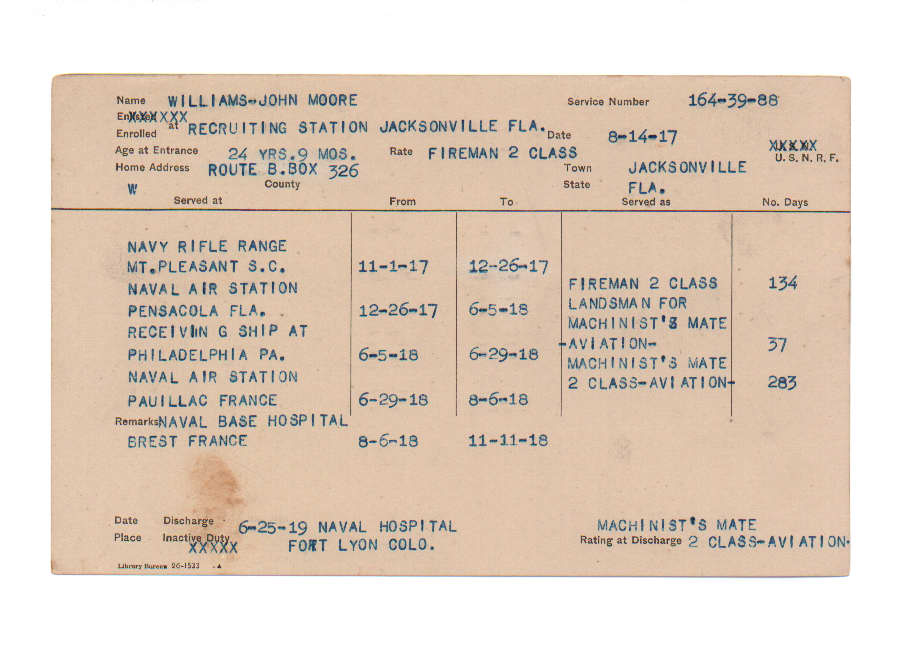 Name WILLIAMS-JOHN MOORE Service Number 164-39-88
Enlisted XXXXXX
Enrolled at RECRUITING STATION JACKSONVILLE FLA. Date 8-14-17
Age at Entrance 24 YRS.9 MOS. Rate FIREMAN 2 CLASS XXXXX U. S. N. R. F.
Home Address ROUTE B.BOX 326 Town JACKSONVILLE
W County State FLA.
Served at From To Served as No. Days
NAVY RIFLE RANGE
MT.PLEASANT S.C. 11-1-17 12-26-17
NAVAL AIR STATION FIREMAN 2 CLASS 134
PENSACOLA FLA. 12-26-17 6-5-18 LANDSMAN FOR
RECEIVIN G SHIP AT MACHINIST'S MATE
PHILADELPHIA PA. 6-5-18 6-29-18 -AVIATION- 37
NAVAL AIR STATION MACHINIST'S MATE
PAUILLAC FRANCE 6-29-18 8-6-18 2 CLASS-AVIATION- 283
Remarks NAVAL BASE HOSPITAL
BREST FRANCE 8-6-18 11-11-18
Date Discharge 6-25-19 NAVAL HOSPITAL MACHINIST'S MATE
Place Inactive Duty XXXXX FORT LYON COLO. Rating at Discharge 2 CLASS-AVIATION.
Library Bureau 26-1533